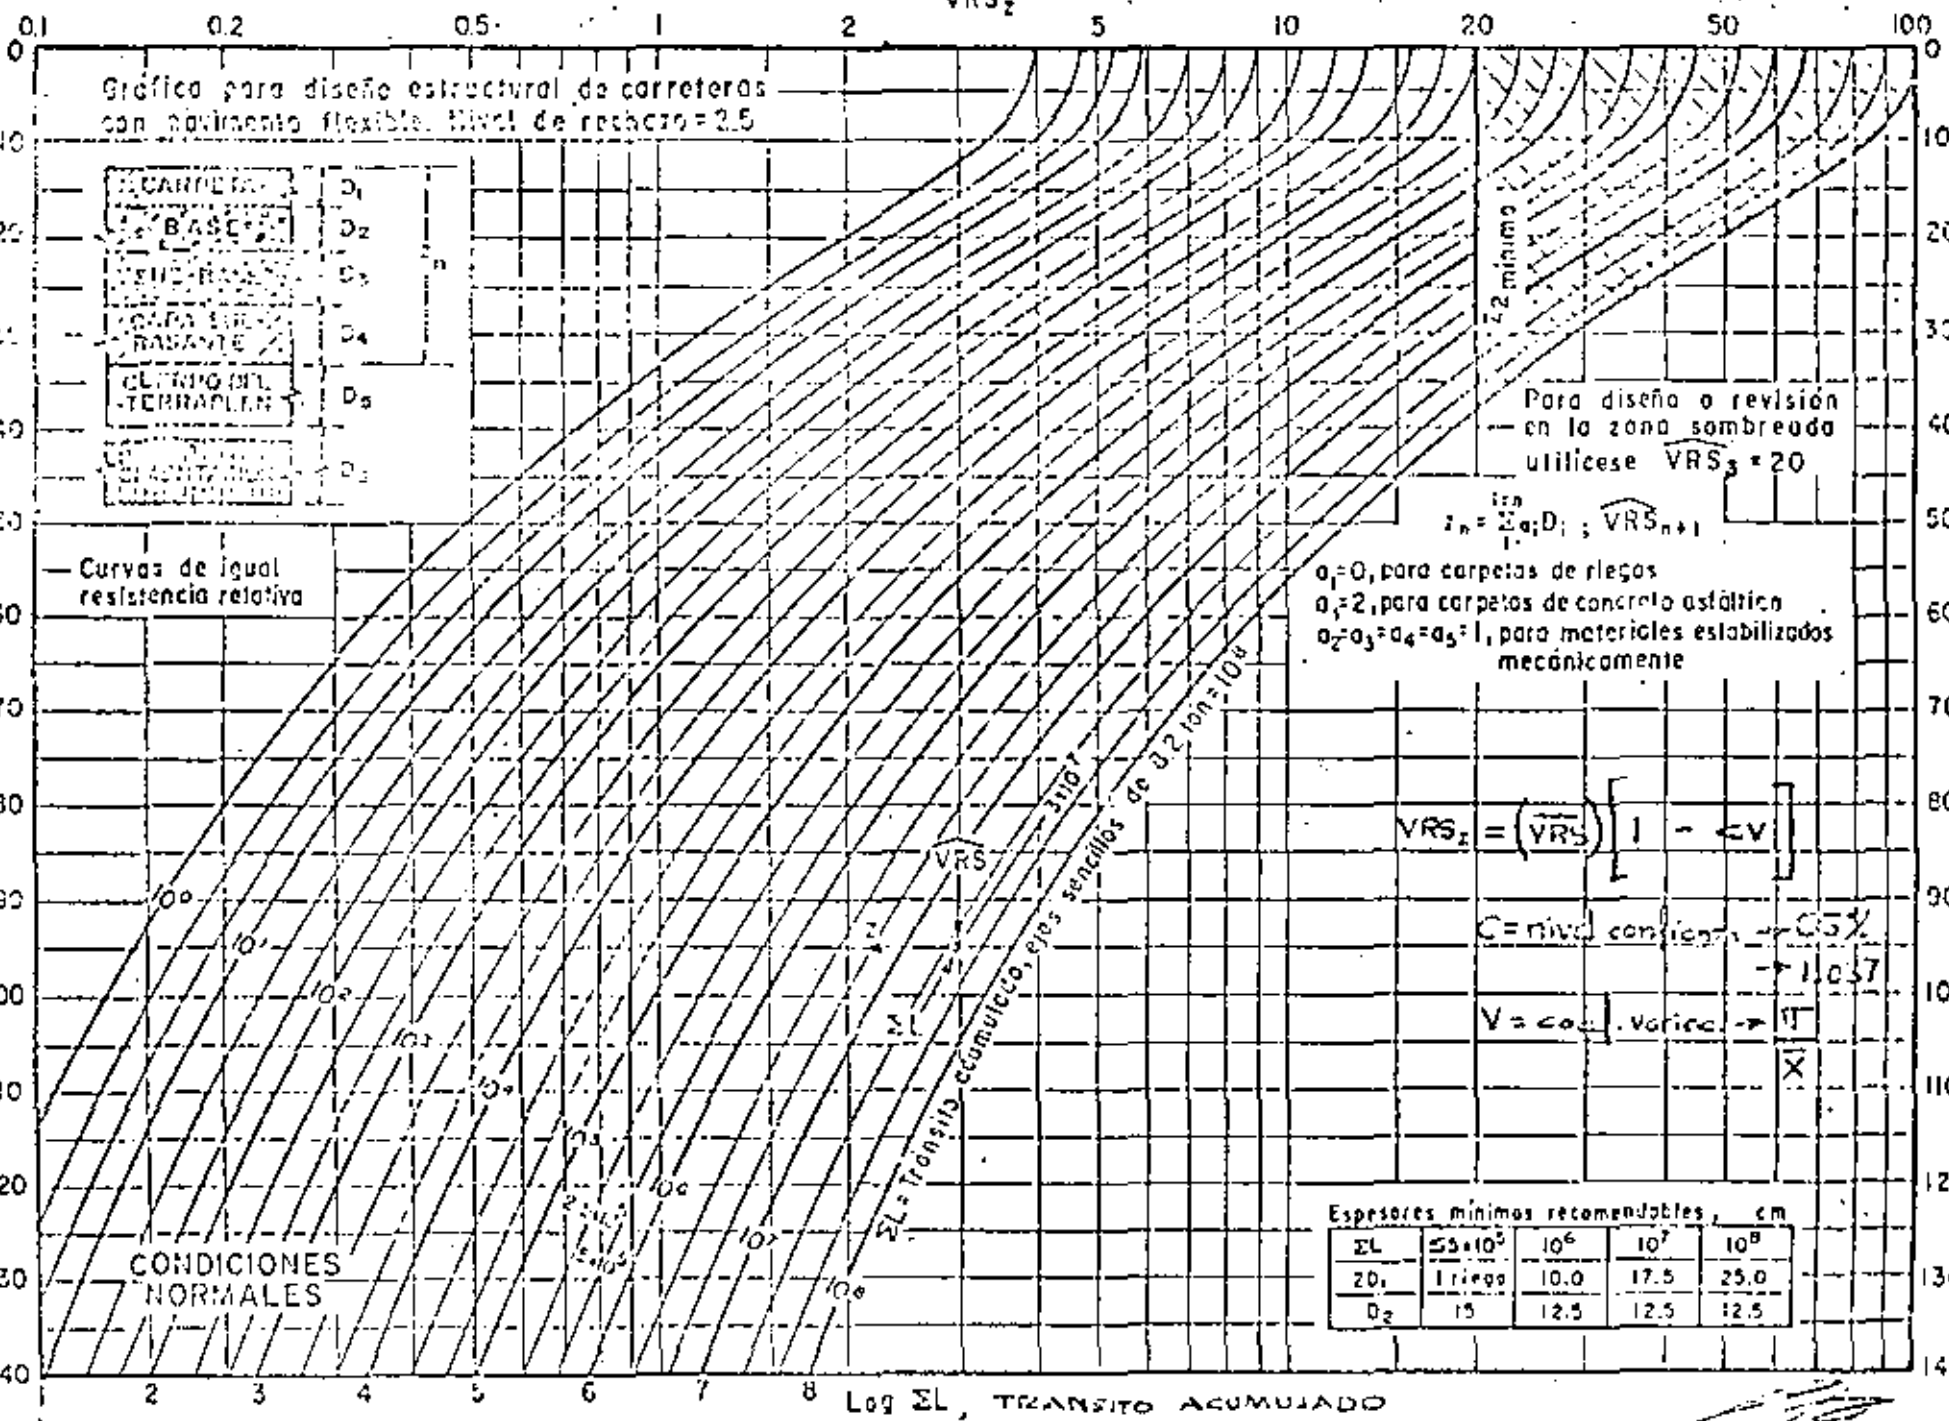 VRSz
0.1 0.2 0.5 1 2 5 10 20 50 100
Gráfica para diseño estructural de carreteras
con pavimento flexible. Nivel de rechazo = 2.5
CARPETA D1
BASE D2
SUB-BASE D3
CAPA SUB-
RASANTE D4
CUERPO DEL
TERRAPLEN D5
zn
Curvas de igual
resistencia relativa
Z2 mínimo
Para diseño o revisión
en la zona sombreada
utilícese VRS3 = 20
zn = Σ aiDi ; VRSn+1
a1=0, para carpetas de riegos
a1=2, para carpetas de concreto asfáltico
a2=a3=a4=a5=1, para materiales estabilizados
mecánicamente
0 10 20 30 40 50 60 70 80 90 100 110 120 130 140
VRSz = (VRS) [1 - CV]
C = nivel
V =
VRS
z
ΣL
3x10⁷
ΣL = Tránsito acumulado, ejes sencillos de 8.2 ton = 10⁸
10⁰
10¹
10²
10³
10⁴
10⁵
10⁶
10⁷
10⁸
CONDICIONES
NORMALES
Espesores mínimos recomendables, cm
ΣL ≤5x10⁵ 10⁶ 10⁷ 10⁸
2D1 1 riego 10.0 17.5 25.0
D2 15 12.5 12.5 12.5
1 2 3 4 5 6 7 8
Log ΣL, TRANSITO ACUMULADO